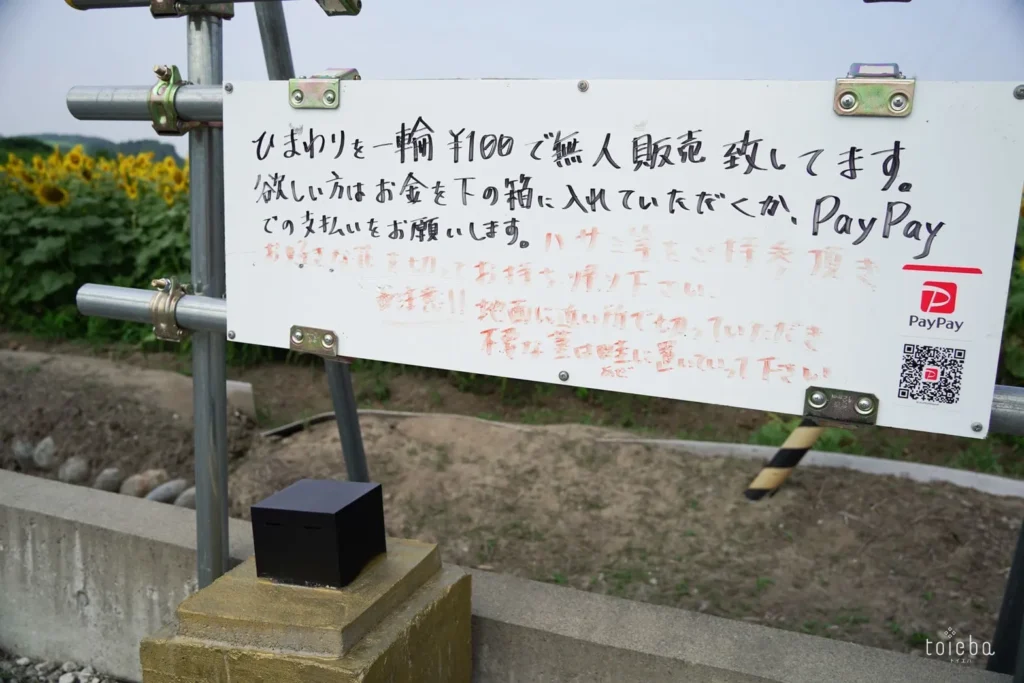 ひまわりを一輪¥100で無人販売 致してます。
欲しい方はお金を下の箱に入れていただくか、PayPay
での支払いをお願いします。ハサミ等をご持参頂き
お好きな花を切ってお持ち帰り下さい。
ご注意!! 地面に近い所で切っていただき
不要な茎は畦に置いていって下さい
PayPay
toieba
トイエバ